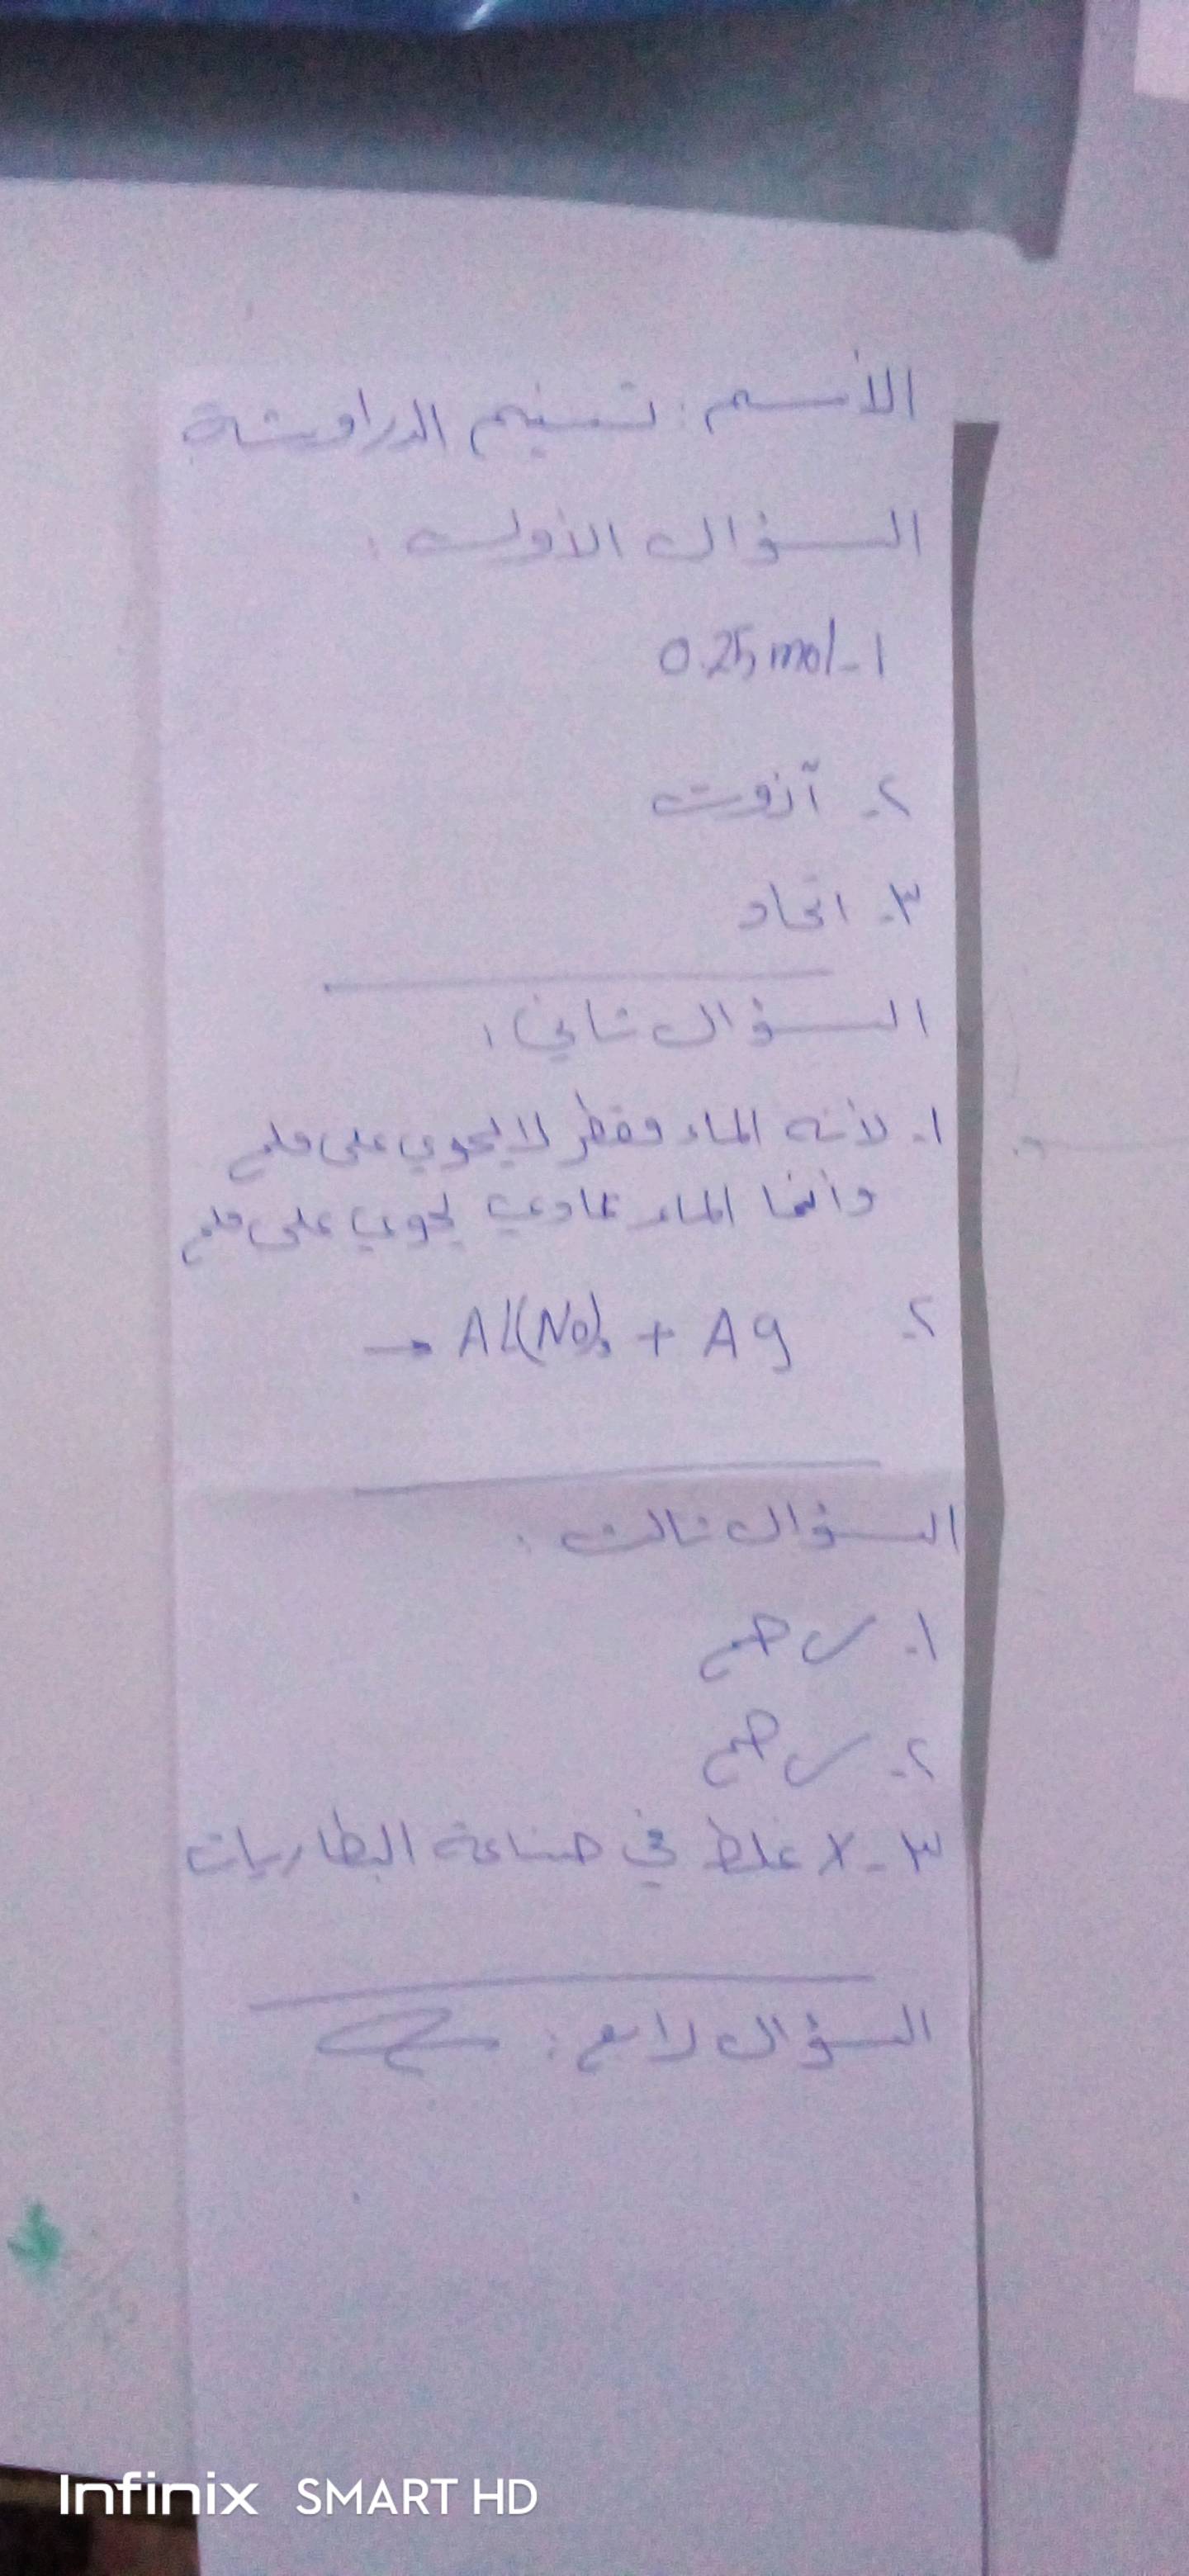 الأسم : تسنيم الدراوشة
السؤال الأول :
1- 0.25 mol
٢- آزوت
٣- اتحاد
السؤال ثاني :
١- لأنه الماء مقطر لا يحوي على ملح
وأنما الماء عادي يحوي على ملح
٢- → Al(No3)3 + Ag
السؤال ثالث :
١- ✓ صح
٢- ✓ صح
٣- X غلط في صناعة البطاريات
السؤال رابع :
Infinix SMART HD